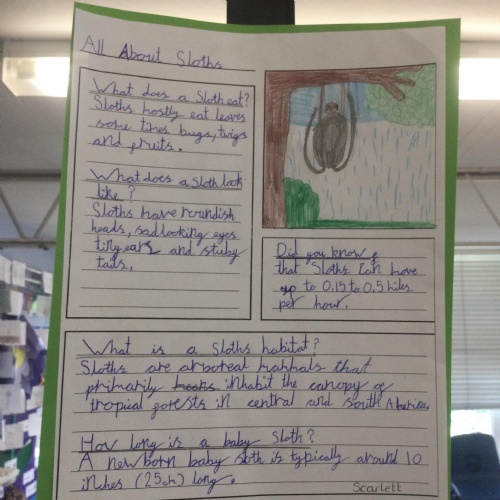 All About Sloths
What does a Sloth eat?
Sloths mostly eat leaves
some times bugs, twigs
and fruits.
What does a Sloth look
like?
Sloths have roundish
heads, sad looking eyes
tiny ears and stuby
tails,
Did you know
that Sloths Can have
up to 0.15 to 0.5 miles
per hour.
What is a Sloths habitat?
Sloths are arboreal mammals that
primarily inhabit the canopy of
tropical forests in central and south America,
How long is a baby Sloth?
A newborn baby sloth is typically around 10
inches (25cm) long.
Scarlett